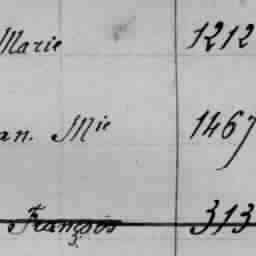 Marie 1212
an. Mie 1467
François 313